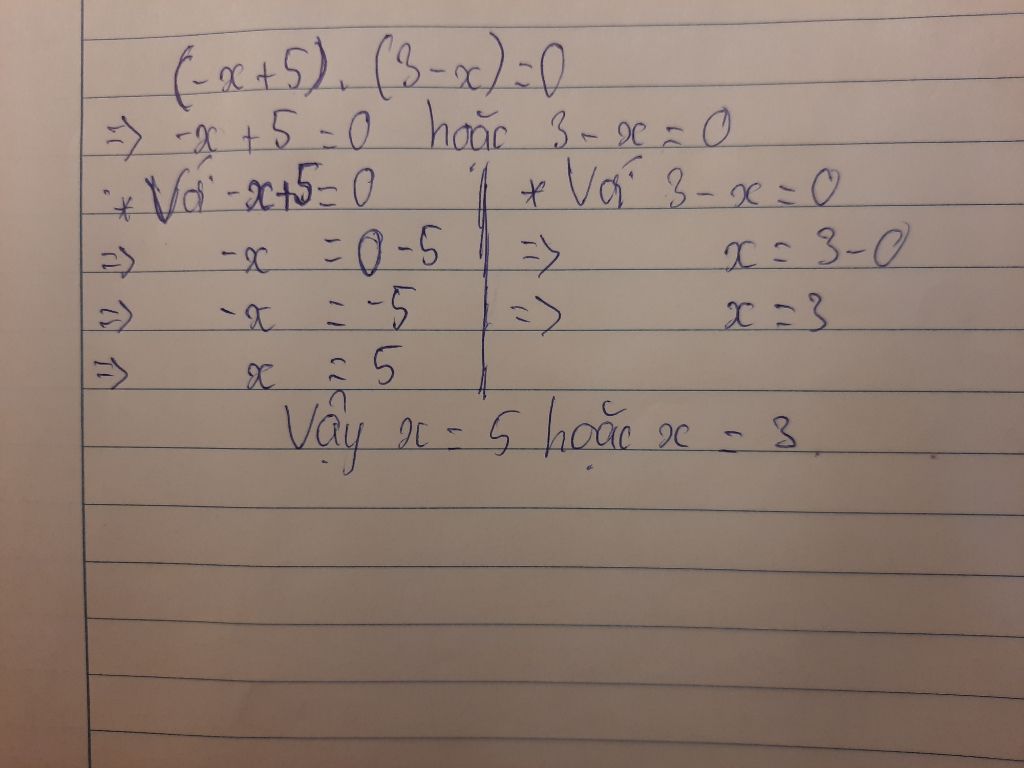 (-x+5).(3-x)=0
=> -x+5=0 hoặc 3-x=0
* Với -x+5=0 * Với 3-x=0
=> -x = 0-5 => x = 3-0
=> -x = -5 => x = 3
=> x = 5
Vậy x = 5 hoặc x = 3.